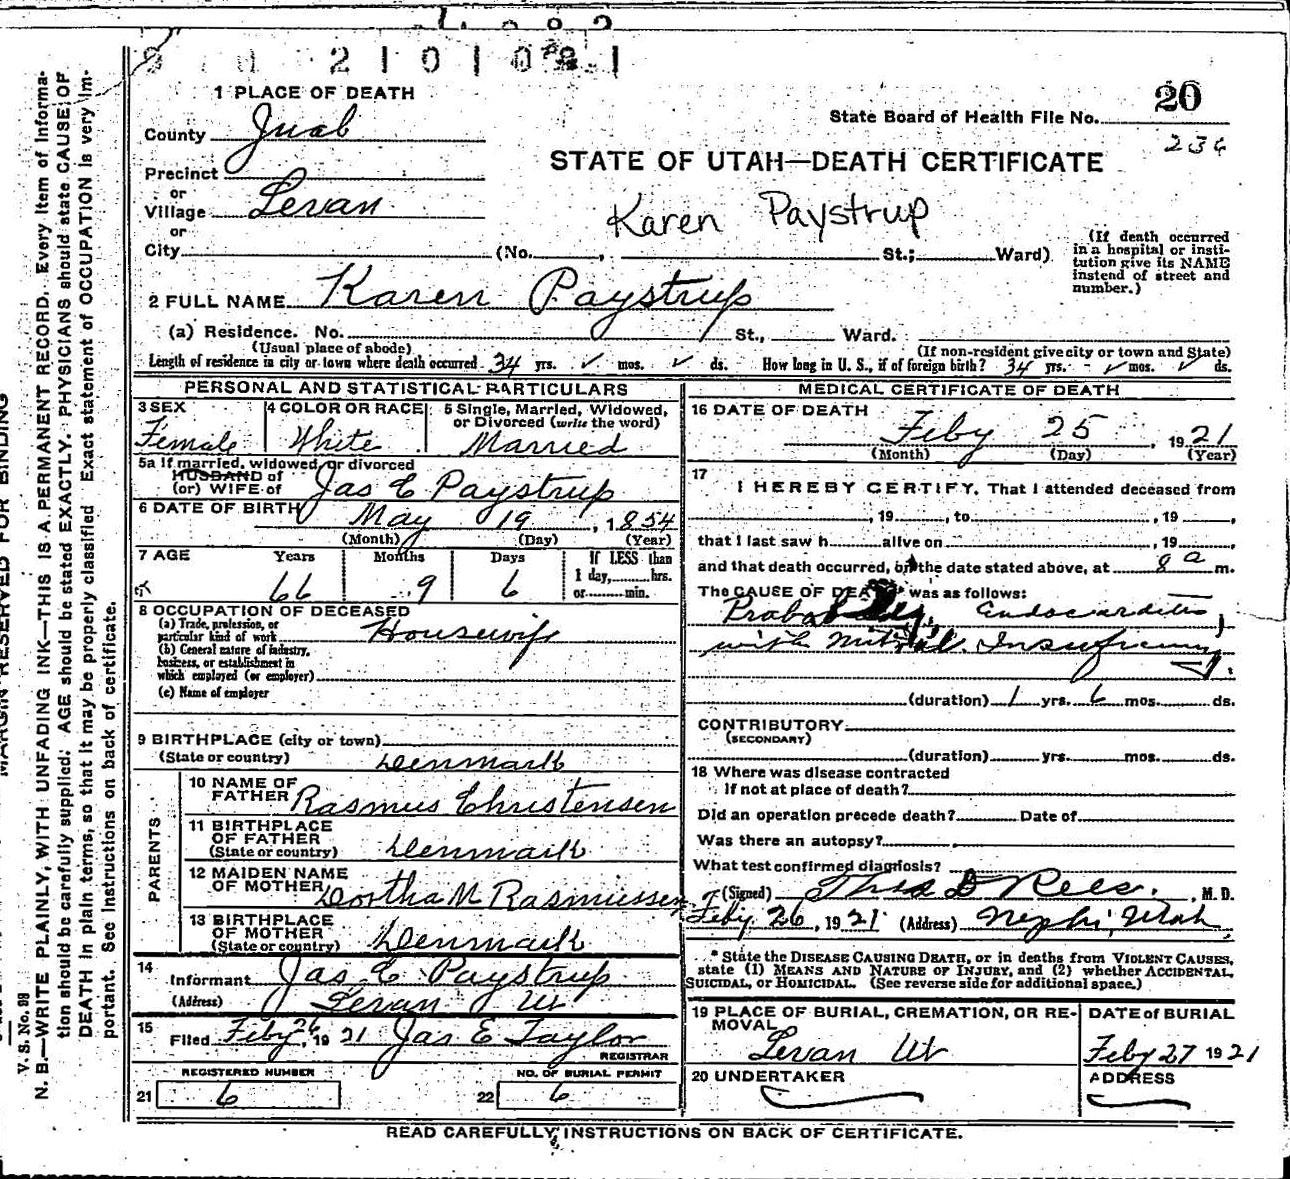 2 1 0 1 0 2 1
1 PLACE OF DEATH
20
State Board of Health File No.
236
County Juab
STATE OF UTAH—DEATH CERTIFICATE
Precinct
or
Village Levan
Karen Paystrup
or
City (No. , St.; Ward)
(If death occurred in a hospital or insti-
tution give its NAME
instead of street and
number.)
2 FULL NAME Karen Paystrup
(a) Residence. No. St., Ward.
(Usual place of abode) (If non-resident give city or town and State)
Length of residence in city or town where death occurred 34 yrs. ✓ mos. ✓ ds. How long in U. S., if of foreign birth? 34 yrs. - ✓ mos. ✓ ds.
PERSONAL AND STATISTICAL PARTICULARS
3 SEX 4 COLOR OR RACE 5 Single, Married, Widowed,
or Divorced (write the word)
Female White Married
5a If married, widowed, or divorced
HUSBAND of
(or) WIFE of Jas E Paystrup
6 DATE OF BIRTH May 19, 1854
(Month) (Day) (Year)
7 AGE Years Months Days If LESS than
1 day, hrs.
or min.
66 9 6
8 OCCUPATION OF DECEASED
(a) Trade, profession, or
particular kind of work Housewife
(b) General nature of industry,
business, or establishment in
which employed (or employer)
(c) Name of employer
9 BIRTHPLACE (city or town)
(State or country) Denmark
PARENTS
10 NAME OF
FATHER Rasmus Christensen
11 BIRTHPLACE
OF FATHER
(State or country) Denmark
12 MAIDEN NAME
OF MOTHER Dortha M Rasmussen
13 BIRTHPLACE
OF MOTHER
(State or country) Denmark
14
Informant Jas E Paystrup
(Address) Levan Ut
15
Filed Feby 26, 19 21 Jas E Taylor
REGISTRAR
REGISTERED NUMBER NO. OF BURIAL PERMIT
21 6 22 6
MEDICAL CERTIFICATE OF DEATH
16 DATE OF DEATH
Feby 25, 1921
(Month) (Day) (Year)
17
I HEREBY CERTIFY, That I attended deceased from
, 19 , to , 19 ,
that I last saw h alive on , 19 ,
and that death occurred, on the date stated above, at 8 a m.
The CAUSE OF DEATH* was as follows:
Probably Endocarditis,
with Mitral Insufficiency.
(duration) 1 yrs. 6 mos. ds.
CONTRIBUTORY
(SECONDARY)
(duration) yrs. mos. ds.
18 Where was disease contracted
If not at place of death?
Did an operation precede death? Date of
Was there an autopsy?
What test confirmed diagnosis?
(Signed) Thos D Rees. , M. D.
Feby. 26, 1921 (Address) Nephi, Utah
* State the DISEASE CAUSING DEATH, or in deaths from VIOLENT CAUSES,
state (1) MEANS AND NATURE OF INJURY, and (2) whether ACCIDENTAL,
SUICIDAL, or HOMICIDAL. (See reverse side for additional space.)
19 PLACE OF BURIAL, CREMATION, OR RE-
MOVAL
Levan Ut
DATE of BURIAL
Feby 27 1921
20 UNDERTAKER
ADDRESS
READ CAREFULLY INSTRUCTIONS ON BACK OF CERTIFICATE.
MARGIN RESERVED FOR BINDING
V. S. No. 98
N. B.—WRITE PLAINLY, WITH UNFADING INK—THIS IS A PERMANENT RECORD. Every item of informa-
tion should be carefully supplied. AGE should be stated EXACTLY. PHYSICIANS should state CAUSE OF
DEATH in plain terms, so that it may be properly classified. Exact statement of OCCUPATION is very im-
portant. See instructions on back of certificate.